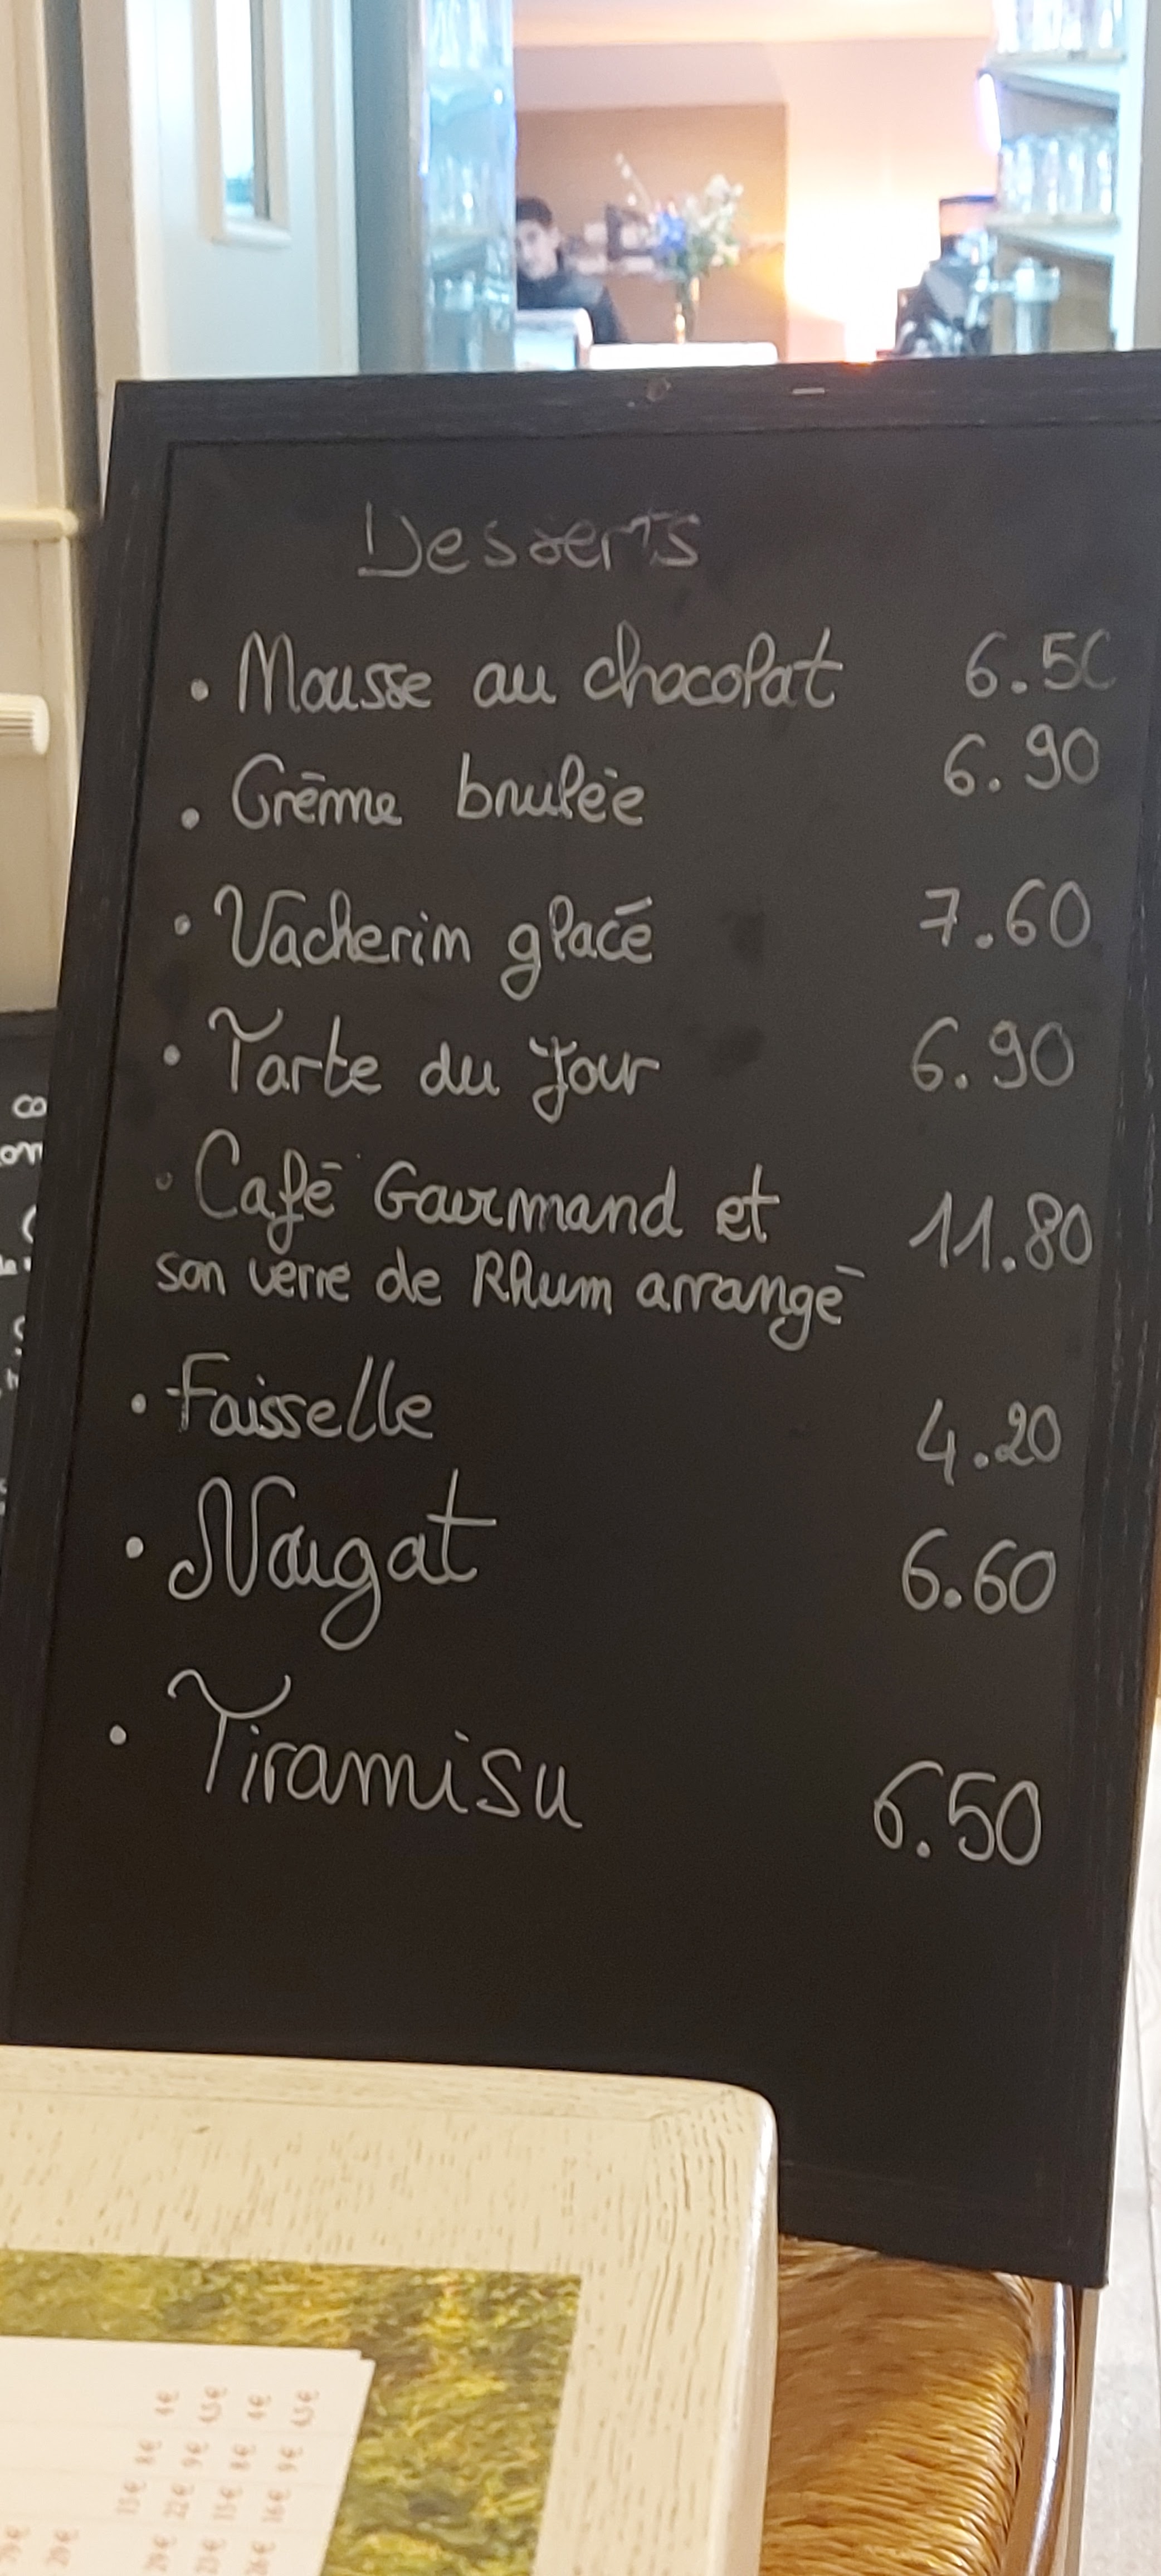 Desserts
• Mousse au chocolat 6.50
• Crème brulée 6.90
• Vacherin glacé 7.60
• Tarte du Jour 6.90
• Café Gourmand et 11.80
son verre de Rhum arrangé
• Faisselle 4.20
• Nougat 6.60
• Tiramisu 6.50
4€
4,5€
4€
4,5€
8€
9€
8€
9€
15€
22€
15€
16€